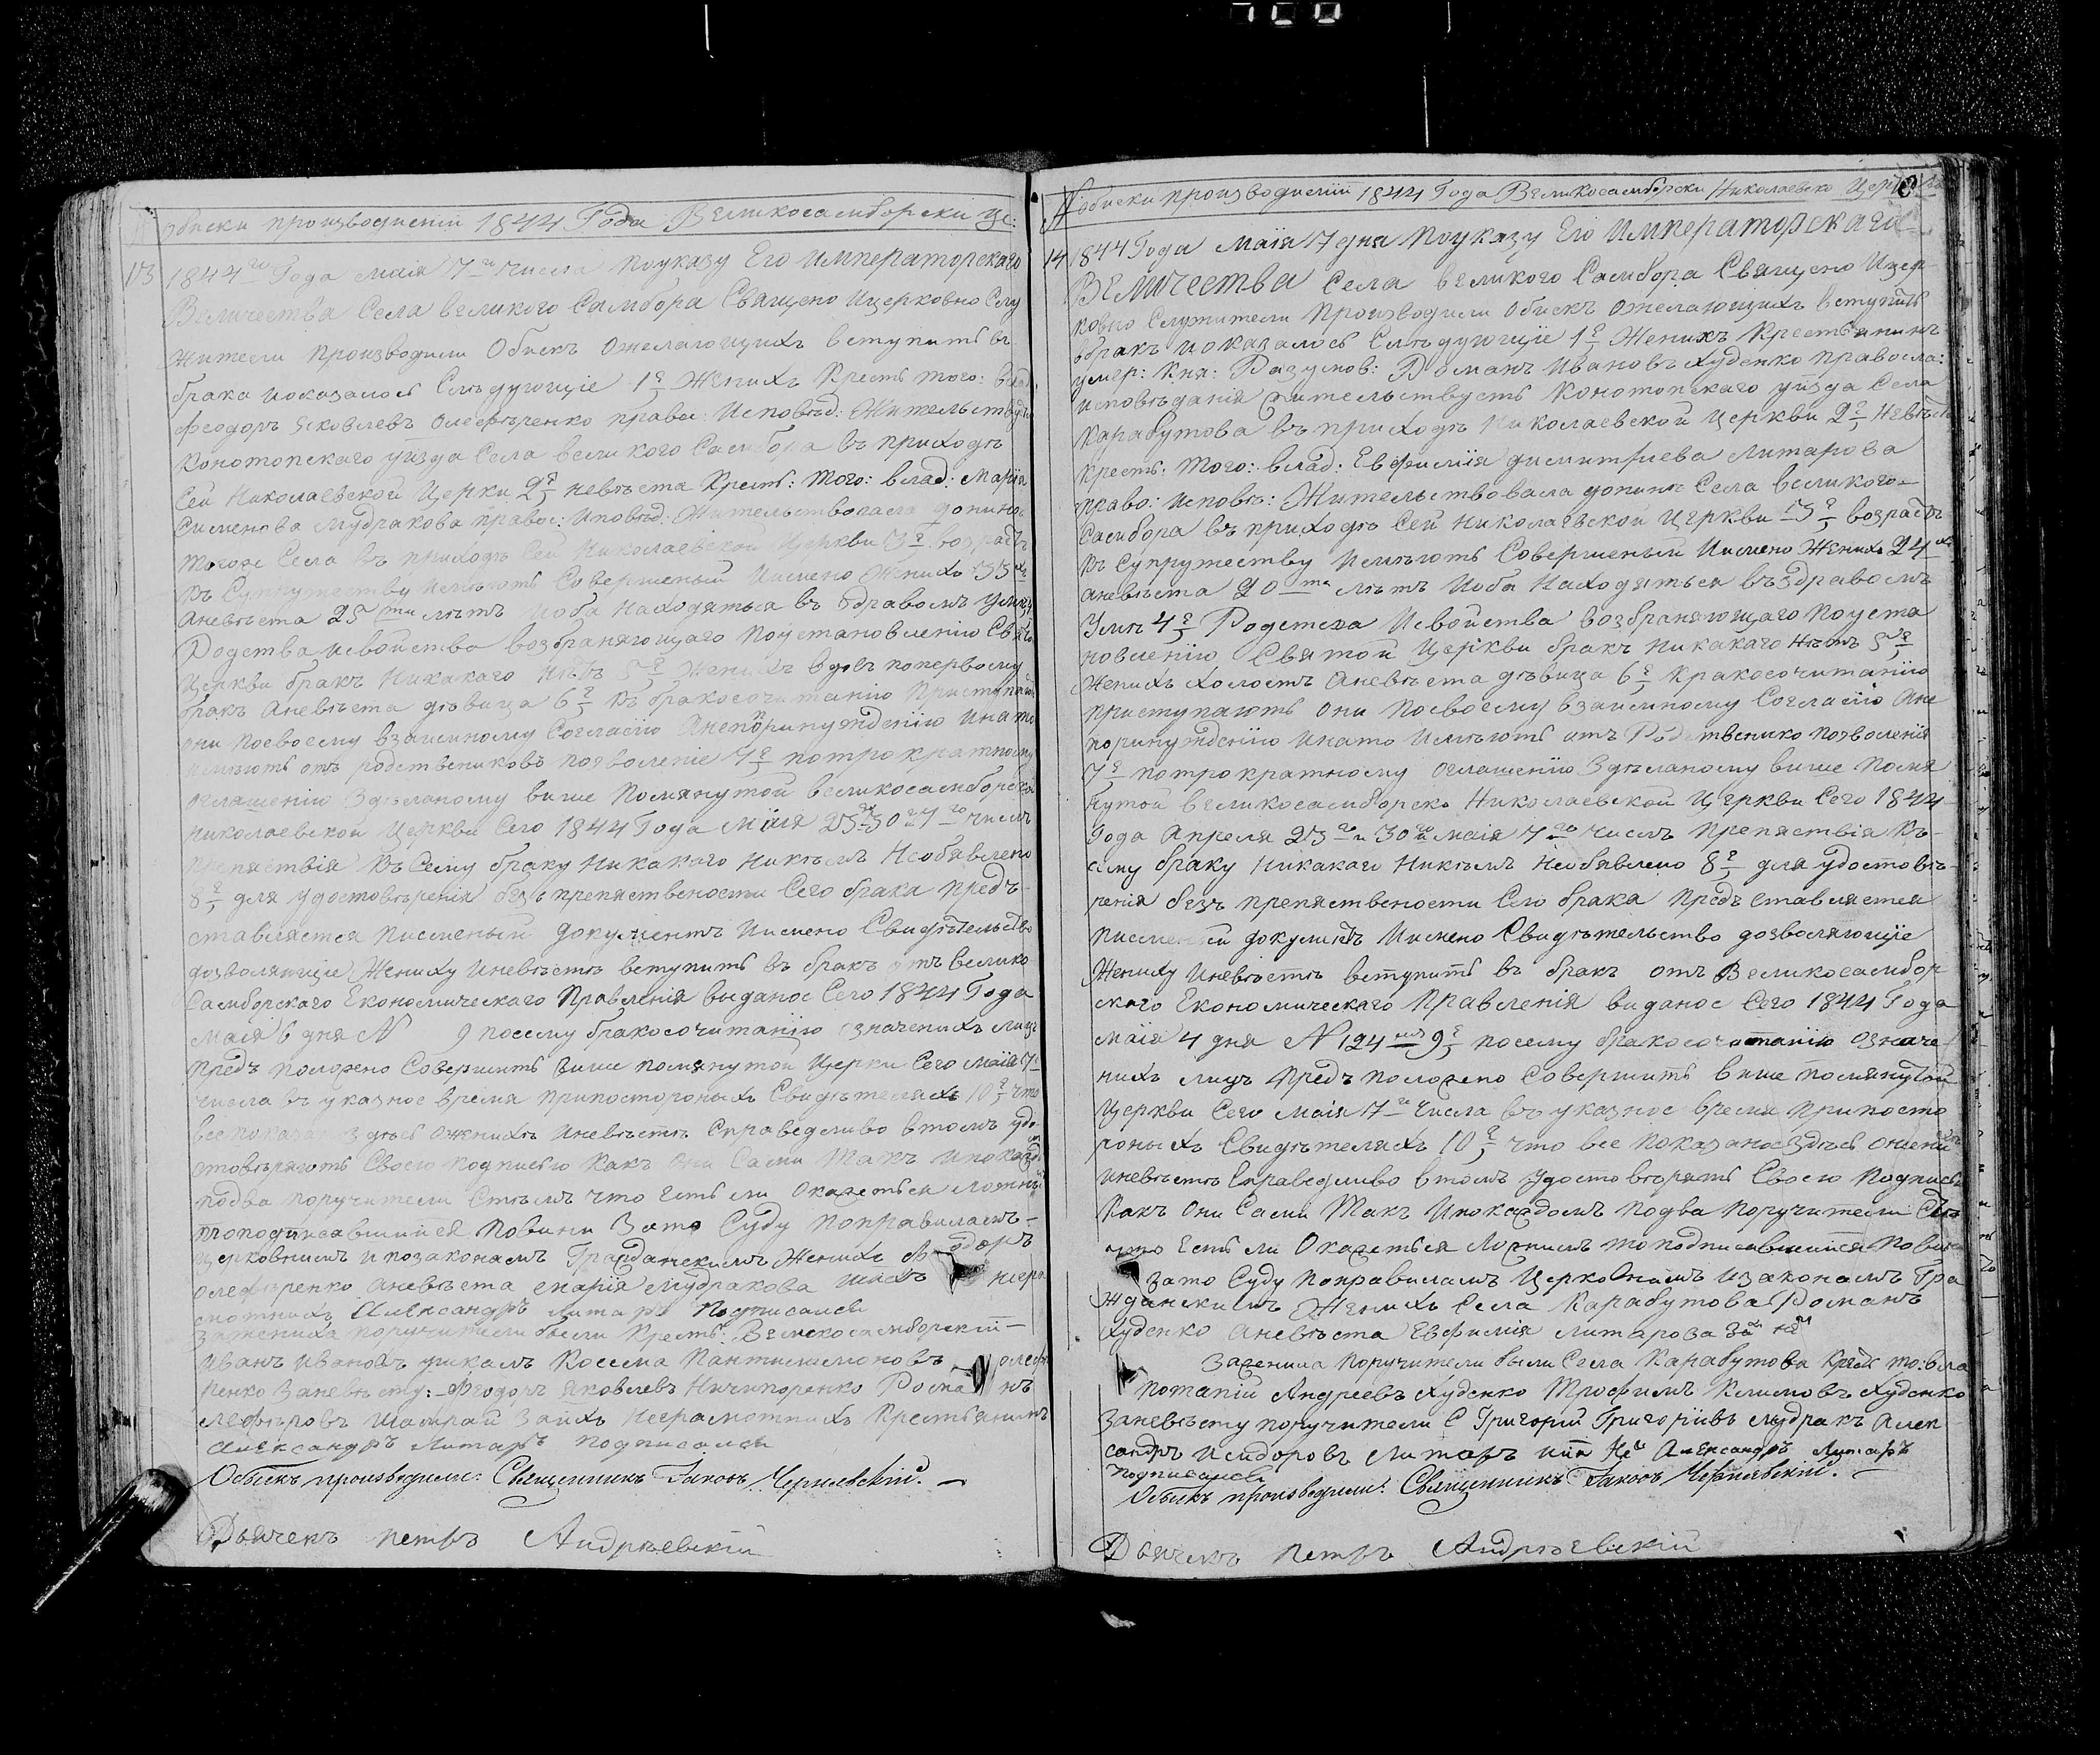 обиски произведиеніи 1844 Года Великосамборски це:
13 1844го Года маія 7го числа поуказу Его Императорскаго
Величества Села великого Самбора Священо Ицерковно Слу
жители производили Обискъ Ожелающихъ вступить въ
брака иоказалось Слѣдующіе 1е Женихъ Крестъ того: влад:
феодоръ Яковлевъ Олефѣренко право: Исповѣд: Жительствуетъ
Конотопскаго уизда Села великого Самбора въ приходѣ
Сей Николаевской Церки 2е невѣста Крест: того: влад: Марія
Сименова Мудракова право: Иповѣд: Жительствовала донинѣ
тогоже Села въ приходѣ Сей Николаевской Церкви 3е возрастъ
къ Супружеству Имѣютъ Совершеный Имено Женихъ 33
Аневѣста 25ти лѣтъ Иоба Находяться въ здравомъ умѣ
Родства исвойства возбраняющаго поустановленію Святой
Церкви бракъ Никакаго Нѣтъ 5е Женихъ вдовъ поперьвому
бракъ Аневѣста дѣвица 6е къ бракосочитанію Приступаютъ
они посвоему взаимному Согласію Анепопринужденію Инато
имѣютъ отъ родствениковъ позволеніе 7е потрократному
оглашенію Здѣланому више Помянутой великосамборской
николаевской Церкви Сего 1844 Года маія 23го 30го 7го числъ
препяствія къ Сему браку Никакаго Никѣмъ Необявлено
8е для удостовѣренія безъ препяствености Сего брака предъ
ставляется писменый документъ Имено Свидѣтельство
дозволяющіе Жениху Иневѣстѣ вступить въ бракъ отъ велико
Самборскаго Економическаго Правленія выданое Сего 1844 Года
маія 6 дня № 9 посему бракосочитанію означенихъ лицъ
предъ положено Совершить више помянутой Церки Сего маія 7
числа въ указное время припостороныхъ Свидѣтеляхъ 10е что
все показано здѣсь оженихѣ Иневѣстѣ Справедливо втомъ удо
стовѣряютъ Своею подписью Какъ Они Сами Такъ Ипокаждо
подва поручители Стѣмъ что Естьли Окажеться ложнымъ
топодписавшийся повини Зато Суду поправиламъ
церковнимъ ипозаконамъ Гражданскимъ Женихъ Феодоръ
Олефѣренко Аневѣста Марія Мудракова
Александръ Литаръ Подписался
Зажениха поручители были Крестъ: Великосамборскій
Иванъ Ивановъ Косма Пантилимоновъ Олефѣ
ренко Заневѣсту: Феодоръ Яковлевъ Ничипоренко Романъ
Шамрай Заихъ Неграмотнихъ Крестьянинъ
Александръ Литаръ подписался
Обыскъ производили: Священникъ Іаковъ Чернявскій.
Дьячекъ петръ Андрѣевскій
обиски произведиеніи 1844 Года Великосамборски Николаевско Церкви
14 1844 Года маія 7 дня Поуказу Его Императорскаго
Величества Села великого Самбора Священо Ицер
ковно Служители Производили Обискъ Ожелающихъ вступить
вбракъ иоказалось Слѣдующіе 1е Женихъ Крестьянинъ
умер: Кня: Разумов: Романъ Ивановъ Худенко правосла:
исповѣданія Жительствуетъ Конотопскаго уизда Села
Карабутова въ приходѣ Николаевской Церкви 2е Невѣста
Крестъ: Того: влад: Евфимія димитріева Литарова
право: исповѣ: Жительствовала донинѣ Села великого
Самбора въ приходѣ Сей Николаевской Церкви 3е возрастъ
къ Супружеству Имѣютъ Совершеный Имено Женихъ 24
аневѣста 20ти лѣтъ Иоба Находяться въздравомъ
Умѣ 4е Родства Исвойства возбраняющаго поуста
новленію Святой Церкви бракъ Никакаго Нѣтъ 5е
Женихъ Холостъ Аневѣста дѣвица 6е Кракосочитанію
приступаютъ они посвоему взаимному Согласію Ане
попринужденію Инато Имѣютъ отъ Родственико позволенія
7е потрократному оглашенію Здѣланому више помя
нутой великосамборско Николаевской Церкви Сего 1844
Года Апреля 23го и 30го маія 7го числъ препяствія Къ
сему браку Никакаго Никѣмъ Необявлено 8е для удостовѣ
ренія безъ препяствености Сего брака предъ ставляется
писменый документъ Имено Свидѣтельство дозволяющіе
Жениху Иневѣстѣ вступить въ бракъ отъ Великосамбор
скаго Економическаго Правленія виданое Сего 1844 Года
маія 4 дня № 124 9е посему бракосочитанію Означе
нихъ лицъ предъ положено Совершить више помянутой
Церкви Сего маія 7го числа въ указное время припосто
роныхъ Свидѣтеляхъ 10е что все показаноездѣсь ожени
иневѣстѣ Справедливо втомъ удостовѣряютъ Своею Подпись
Какъ Они Сами Такъ Ипокаждомъ подва поручители Стѣ
что Естьли Окажеться Ложнимъ топодписавшийся повини
Зато Суду поправиламъ Церковнамъ Изаконамъ Гра
жданскимъ Женихъ Села Карабутова Романъ
Худенко аневѣста Евфимія Литарова
Зажениха поручители были Села Карабутова Крест: то: вла
потапій Андреевъ Худенко Трофимъ Климовъ Худенко
Заневѣсту поручители С Григорій Григоріивъ Мудракъ Алек
сандръ Исидоровъ Литаръ Александръ Литаръ
подписался
Обыскъ производили: Священникъ Іаковъ Чернявскій.
Дьячекъ петръ Андрѣевскій